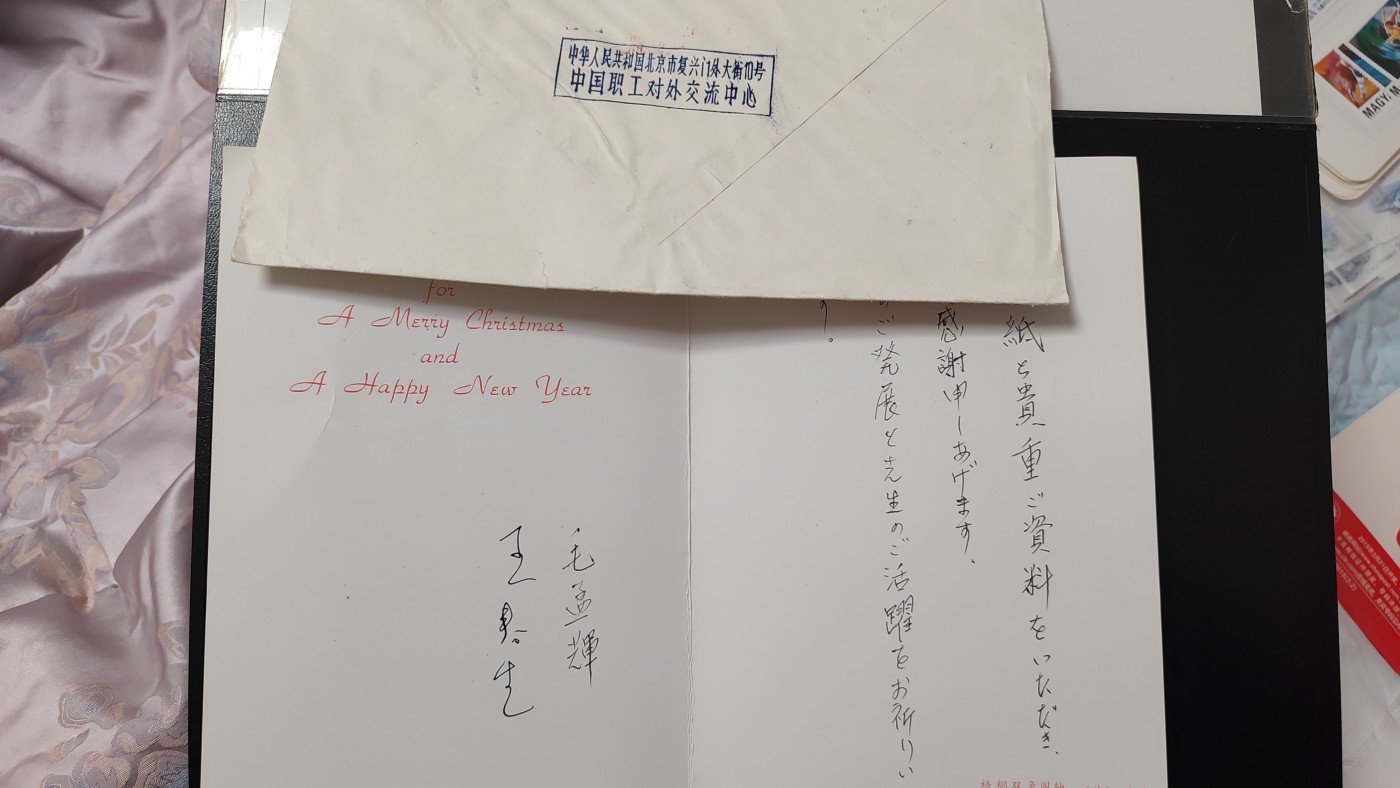 中华人民共和国北京市复兴门外大街10号
中国职工对外交流中心
for
A Merry Christmas
and
A Happy New Year
毛孟輝
王春生
紙と貴重ご資料をいただき、
感謝申しあげます、
のご発展と先生のご活躍をお祈りい
す。
MAGY. M